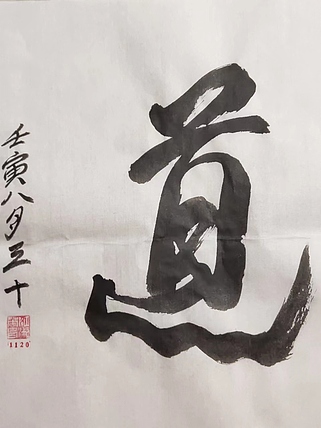 道
壬寅八月三十
1120